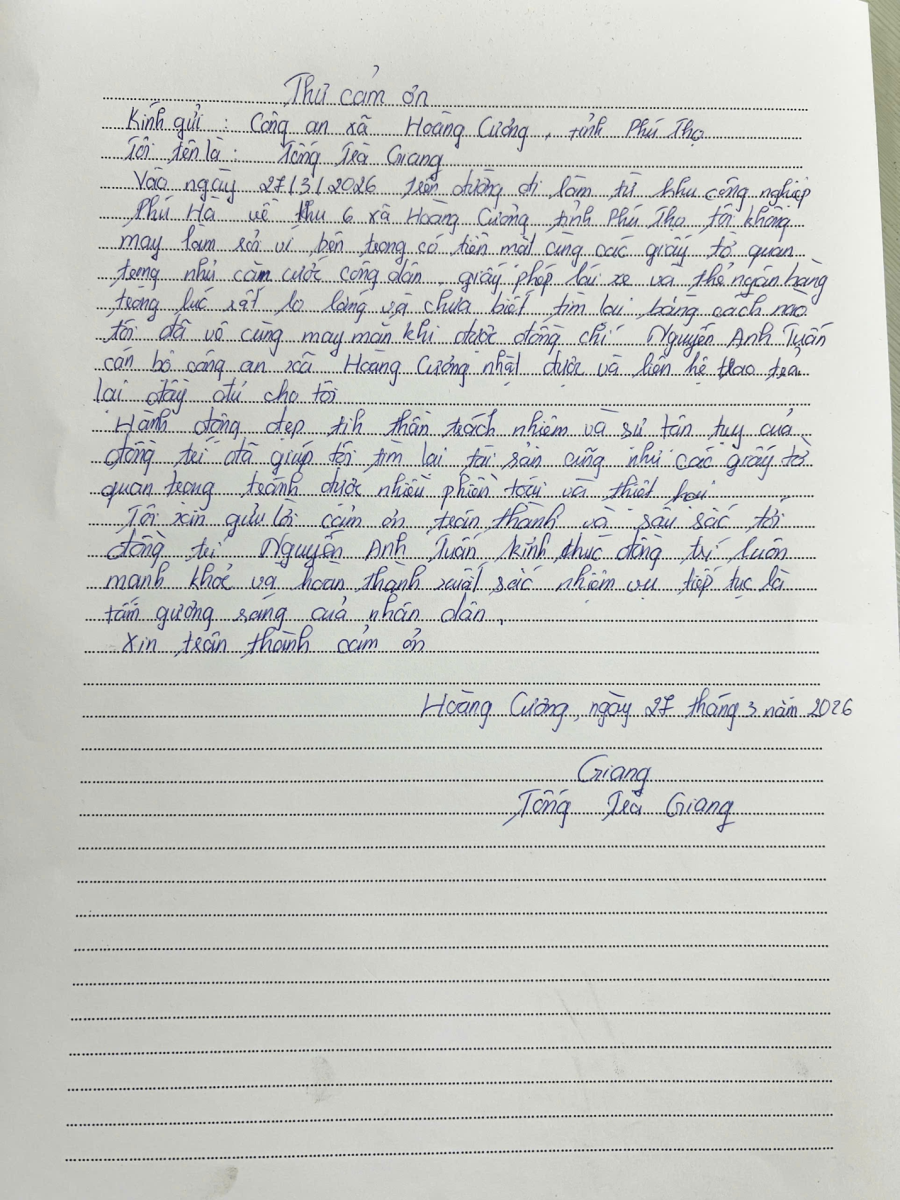 Thư cảm ơn
Kính gửi : Công an xã Hoàng Cương, tỉnh Phú Thọ
Tôi tên là : Tống Trà Giang
Vào ngày 27/3/2026 trên đường đi làm từ khu công nghiệp
Phú Hà về khu 6 xã Hoàng Cương tỉnh Phú Thọ tôi không
may làm rơi ví bên trong có tiền mặt cùng các giấy tờ quan
trọng như căn cước công dân, giấy phép lái xe và thẻ ngân hàng
trong lúc rất lo lắng và chưa biết tìm lại bằng cách nào
tôi đã vô cùng may mắn khi được đồng chí Nguyễn Anh Tuấn
cán bộ công an xã Hoàng Cương nhặt được và liên hệ trao trả
lại đầy đủ cho tôi
Hành động đẹp tinh thần trách nhiệm và sự tận tụy của
đồng trí đã giúp tôi tìm lại tài sản cũng như các giấy tờ
quan trọng tránh được nhiều phiền toái và thiệt hại
Tôi xin gửi lời cảm ơn trân thành và sâu sắc tới
đồng trí Nguyễn Anh Tuấn kính chúc đồng trí luôn
mạnh khỏe và hoàn thành xuất sắc nhiệm vụ tiếp tục là
tấm gương sáng của nhân dân,
Xin trân thành cảm ơn
Hoàng Cương, ngày 27 tháng 3 năm 2026
Giang
Tống Trà Giang